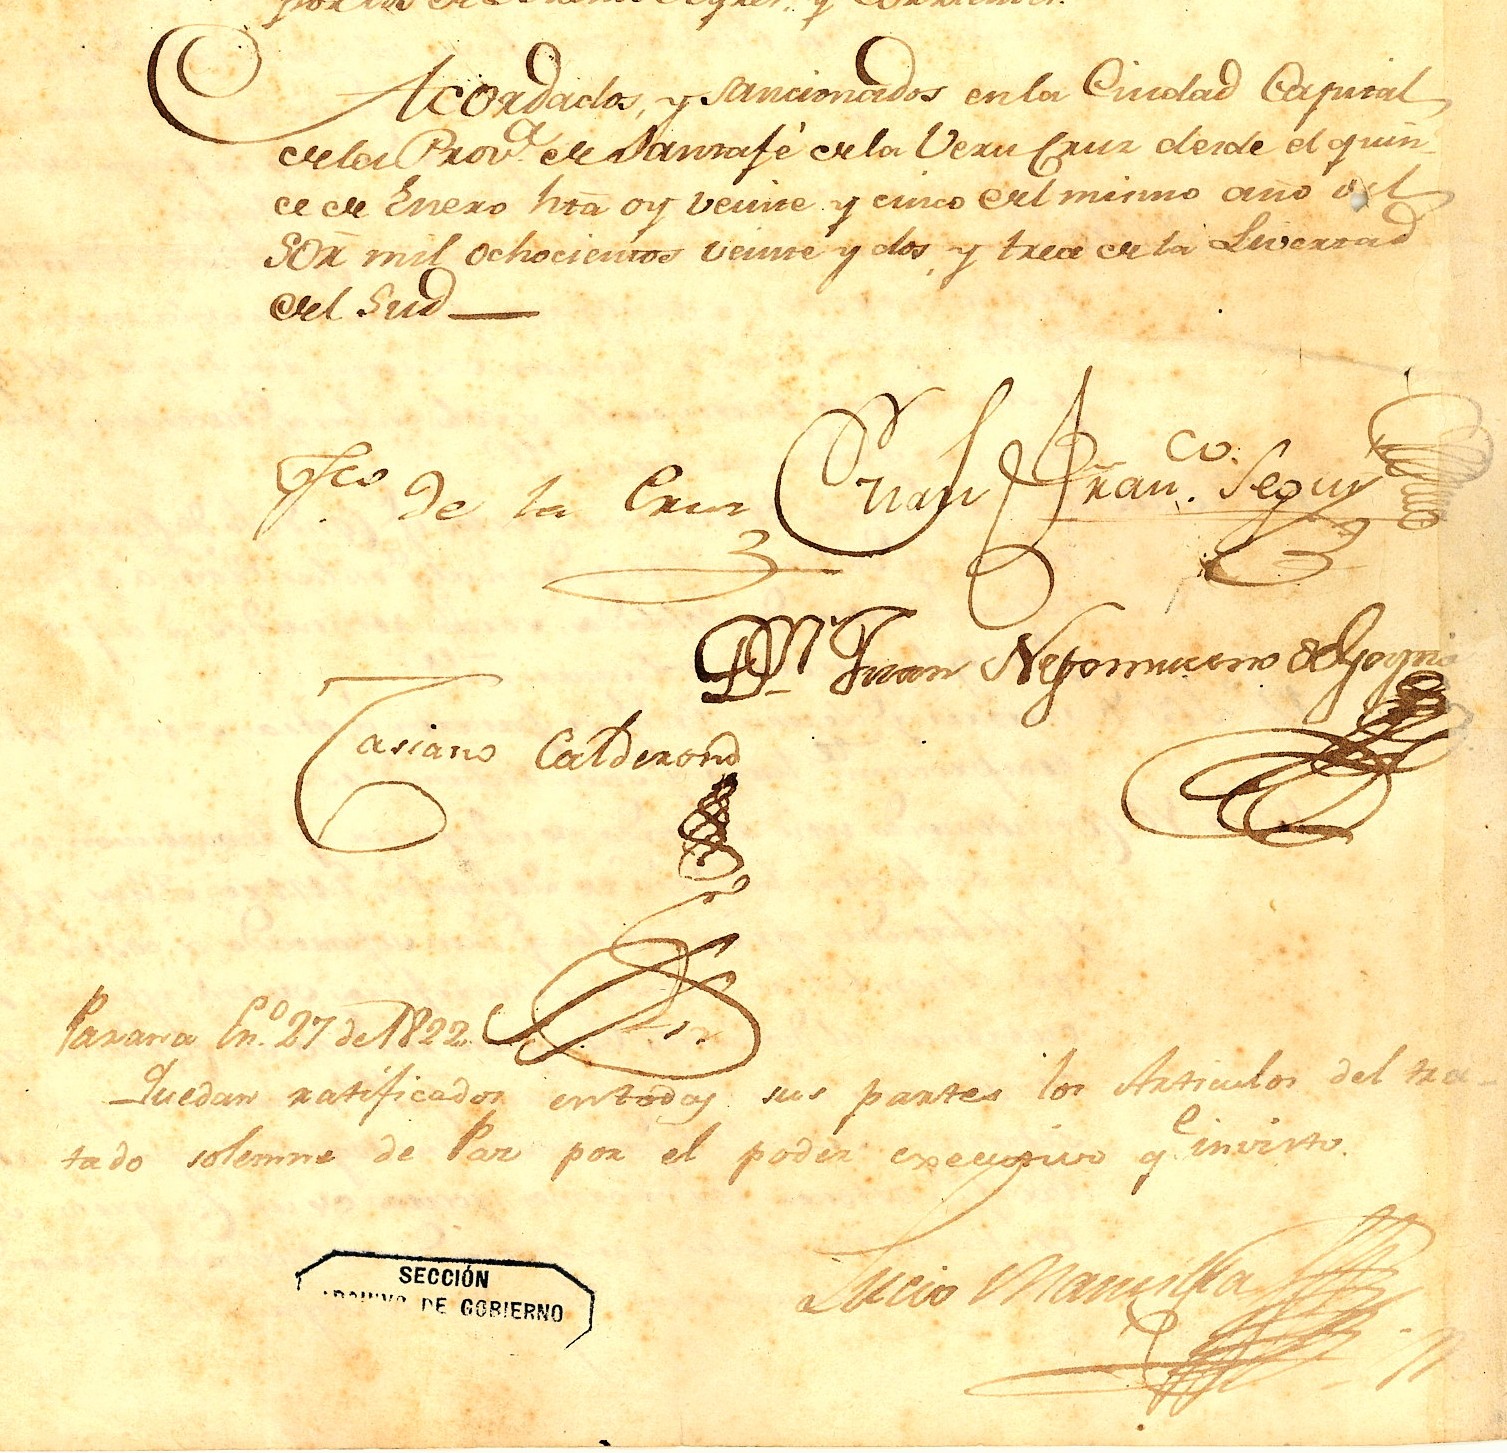 por la de Buenos Ayres, y Corrientes.
Acordados, y sancionados en la Ciudad Capital
de la Prov.ª de Santafé de la Vera Cruz desde el quin-
ce de Enero htã oy veinte y cinco del mismo año del
Sõr mil ochocientos veinte y dos, y trece de la Livertad
del Sud
Fco de la Cruz Juan Franco. Segui
Dr. Mn. Juan Nepomuceno de Goytia
Casiano Calderon
Parana En.º 27 de 1822.
Quedan ratificados en todas sus partes los Articulos del tra-
tado solemne de Paz por el poder executivo qe invisto.
Lucio Mansilla
SECCIÓN
ARCHIVO DE GOBIERNO